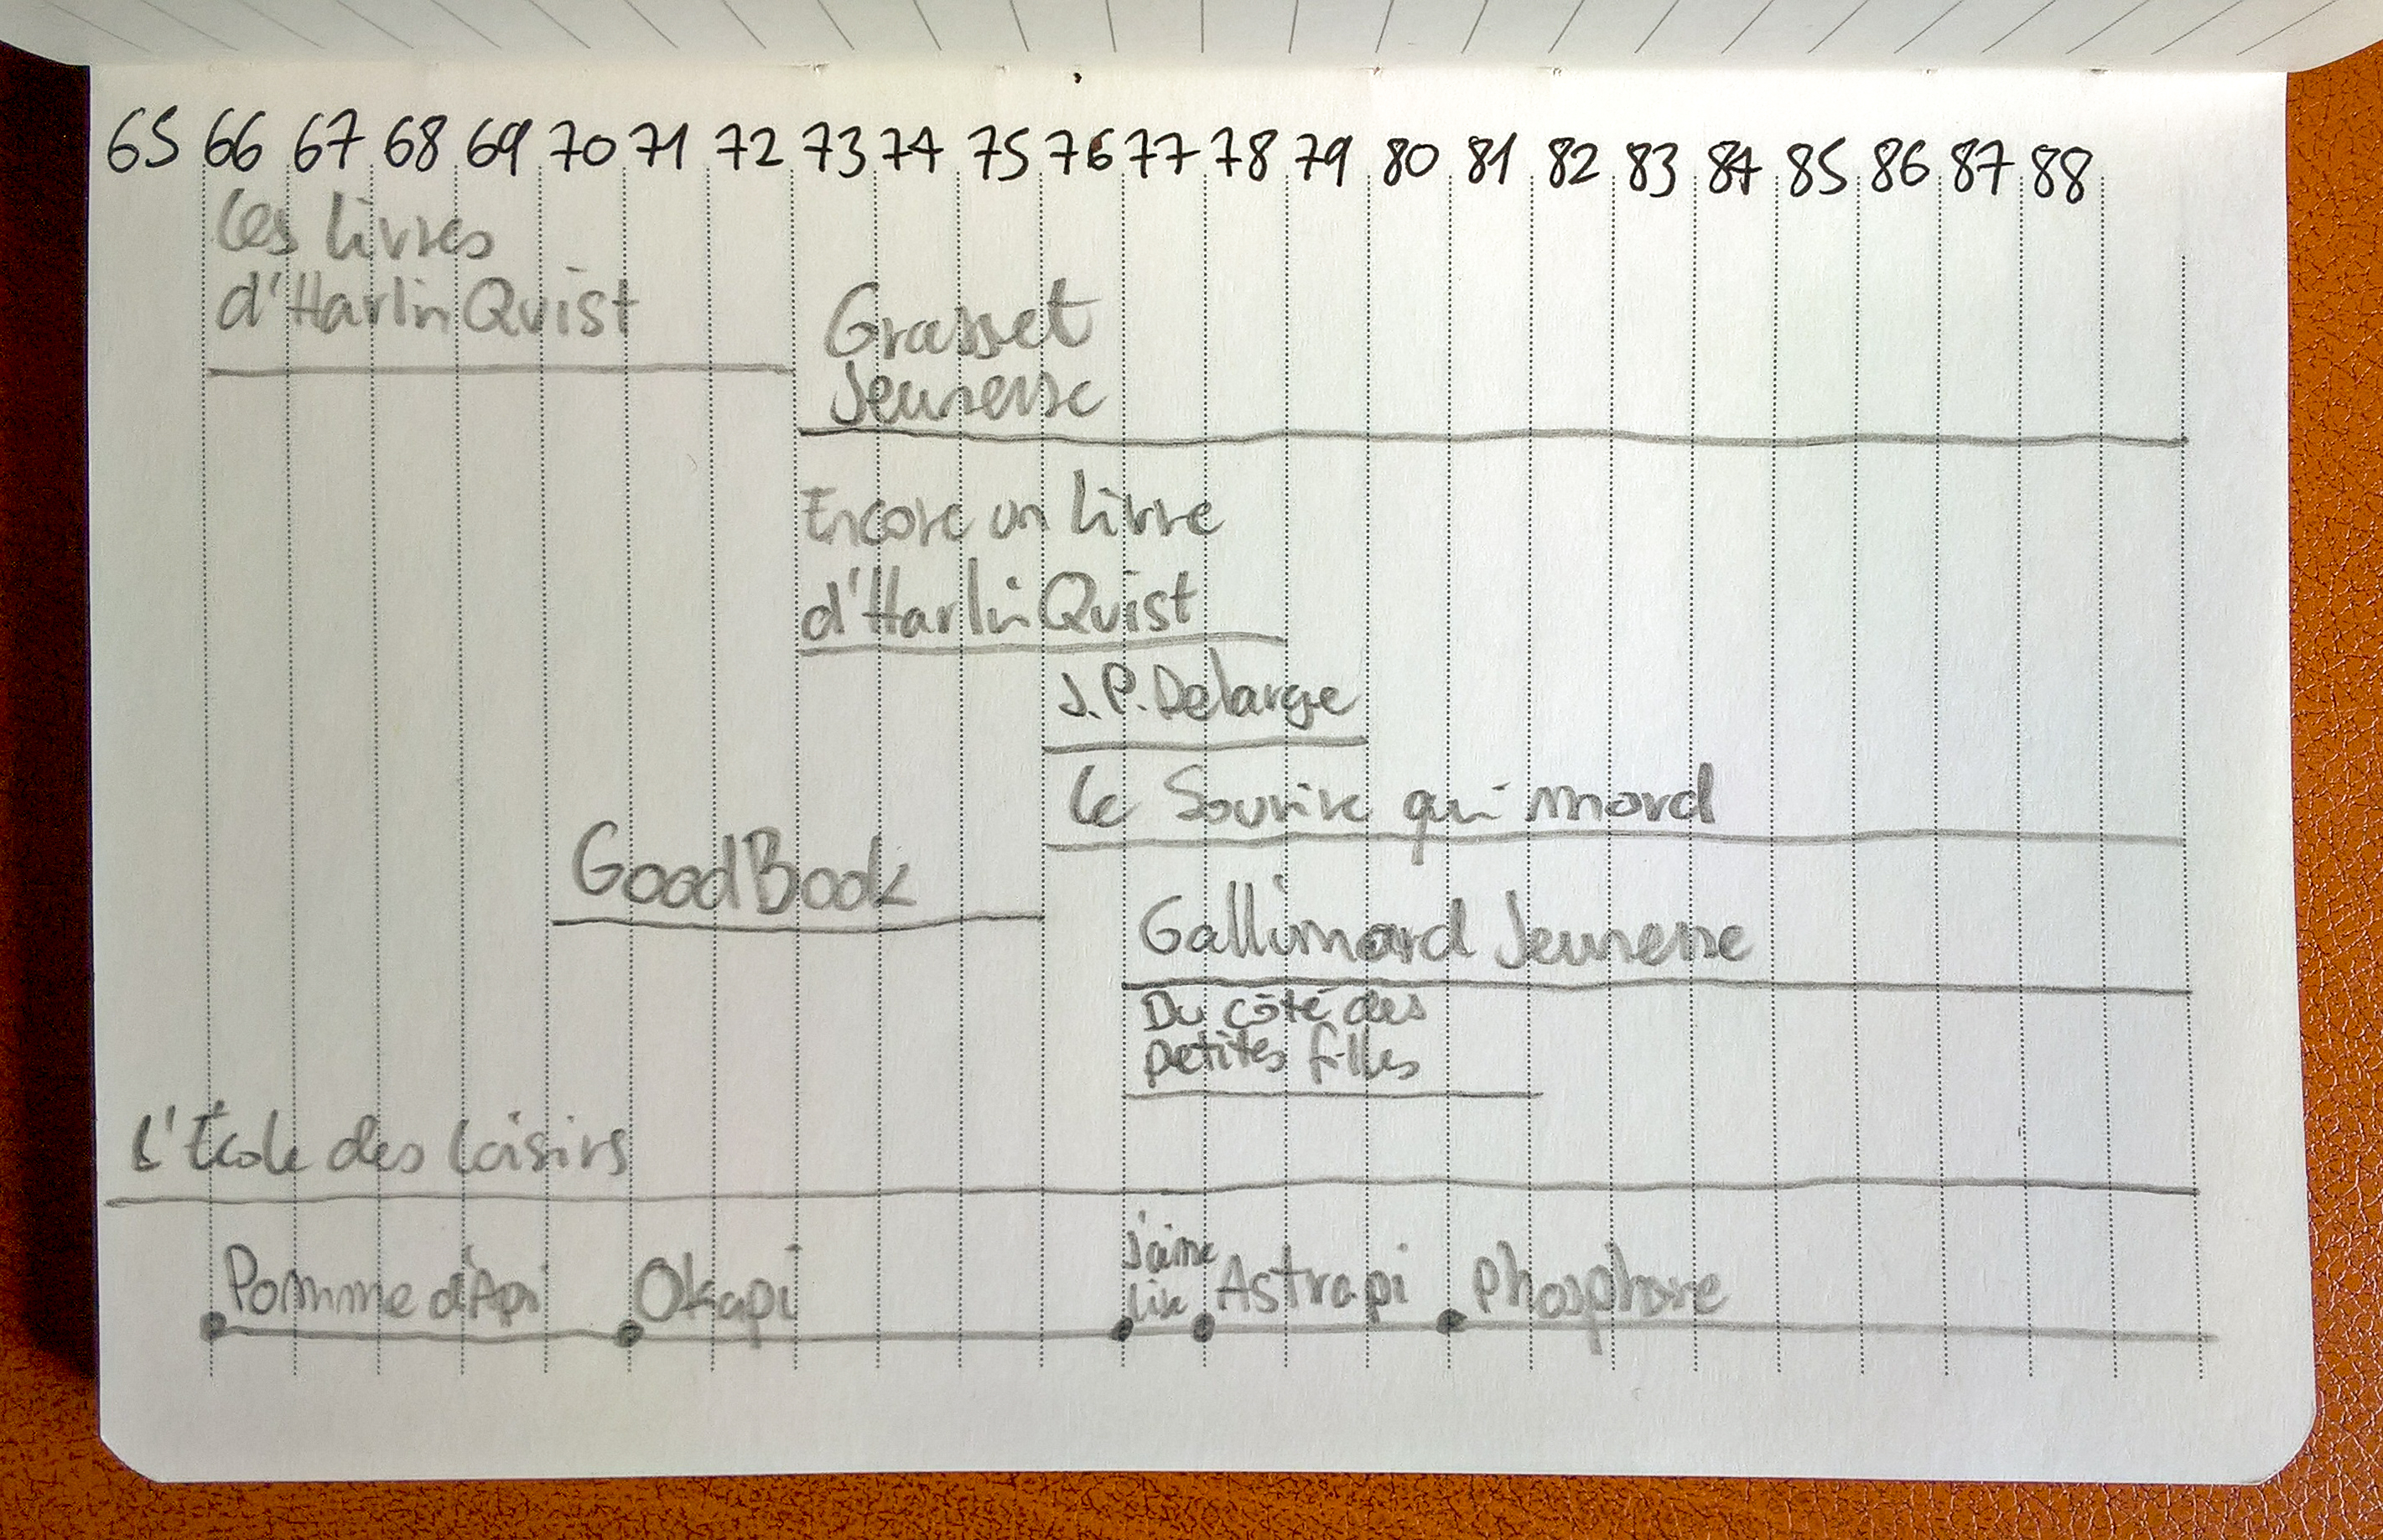 65 66 67 68 69 70 71 72 73 74 75 76 77 78 79 80 81 82 83 84 85 86 87 88
Les livres
d'Harlin Quist
Grasset
Jeunesse
Encore un livre
d'Harlin Quist
J.P. Delarge
Le Sourire qui mord
Good Book
Gallimard Jeunesse
Du côté des
petites filles
L'École des loisirs
Pomme d'Api
Okapi
J'aime
lire
Astrapi
Phosphore